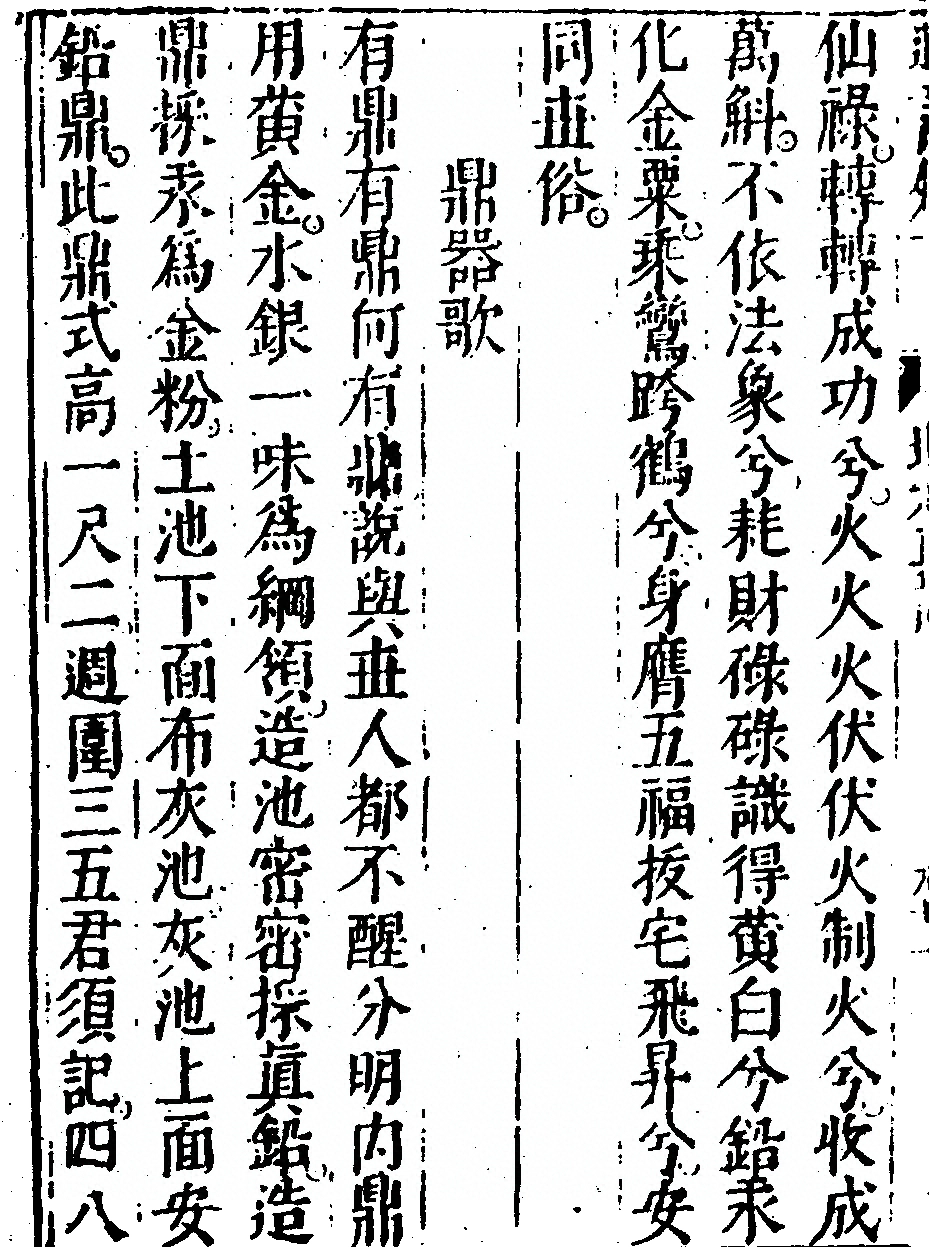 仙祿。轉轉成功兮。火火火伏伏火制火兮。收成
萬斛。不依法象兮、耗財碌碌識得黄白兮鉛汞
化金粟。乘鸞跨鶴兮、身膺五福拔宅飛昇兮。安
同世俗。
鼎器歌
有鼎有鼎何有鼎說與世人都不醒分明內鼎
用黄金。水銀一味爲綱領。造池密密採眞鉛。造
鼎採汞爲金粉。土池下面布灰池灰池上面安
鉛鼎。此鼎式高一尺二、週圍三五君須記、四八